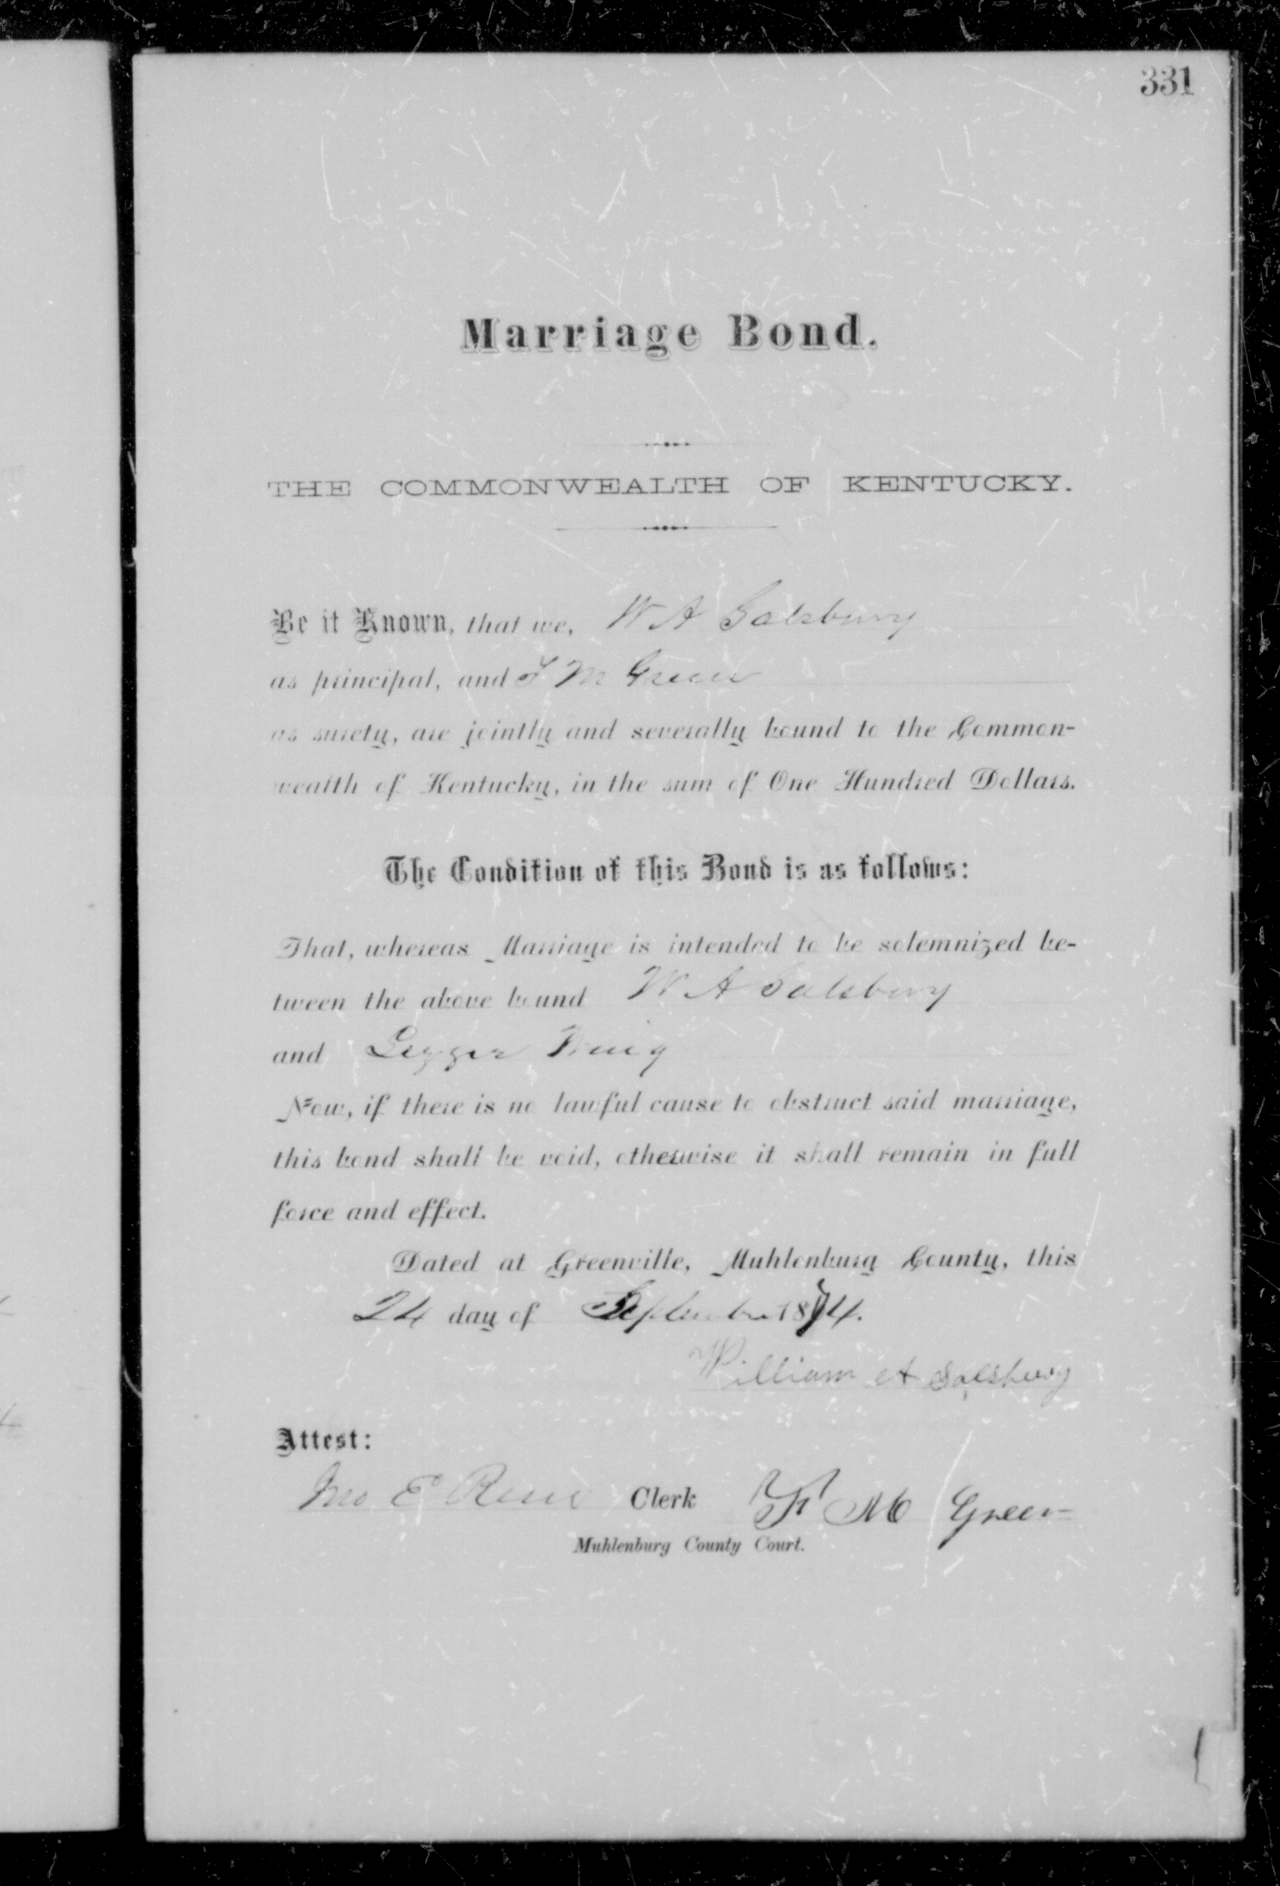 331
Marriage Bond.
THE COMMONWEALTH OF KENTUCKY.
Be it Known, that we, W A Salsbury
as principal, and F M Green
as surety, are jointly and severally bound to the Common-
wealth of Kentucky, in the sum of One Hundred Dollars.
The Condition of this Bond is as follows:
That, whereas Marriage is intended to be solemnized be-
tween the above bound W A Salsbury
and
Now, if there is no lawful cause to obstruct said marriage,
this bond shall be void, otherwise it shall remain in full
force and effect.
Dated at Greenville, Muhlenburg County, this
24 day of September 1874.
William A Salsbury
Attest:
Jno E Clerk F M Green
Muhlenburg County Court.